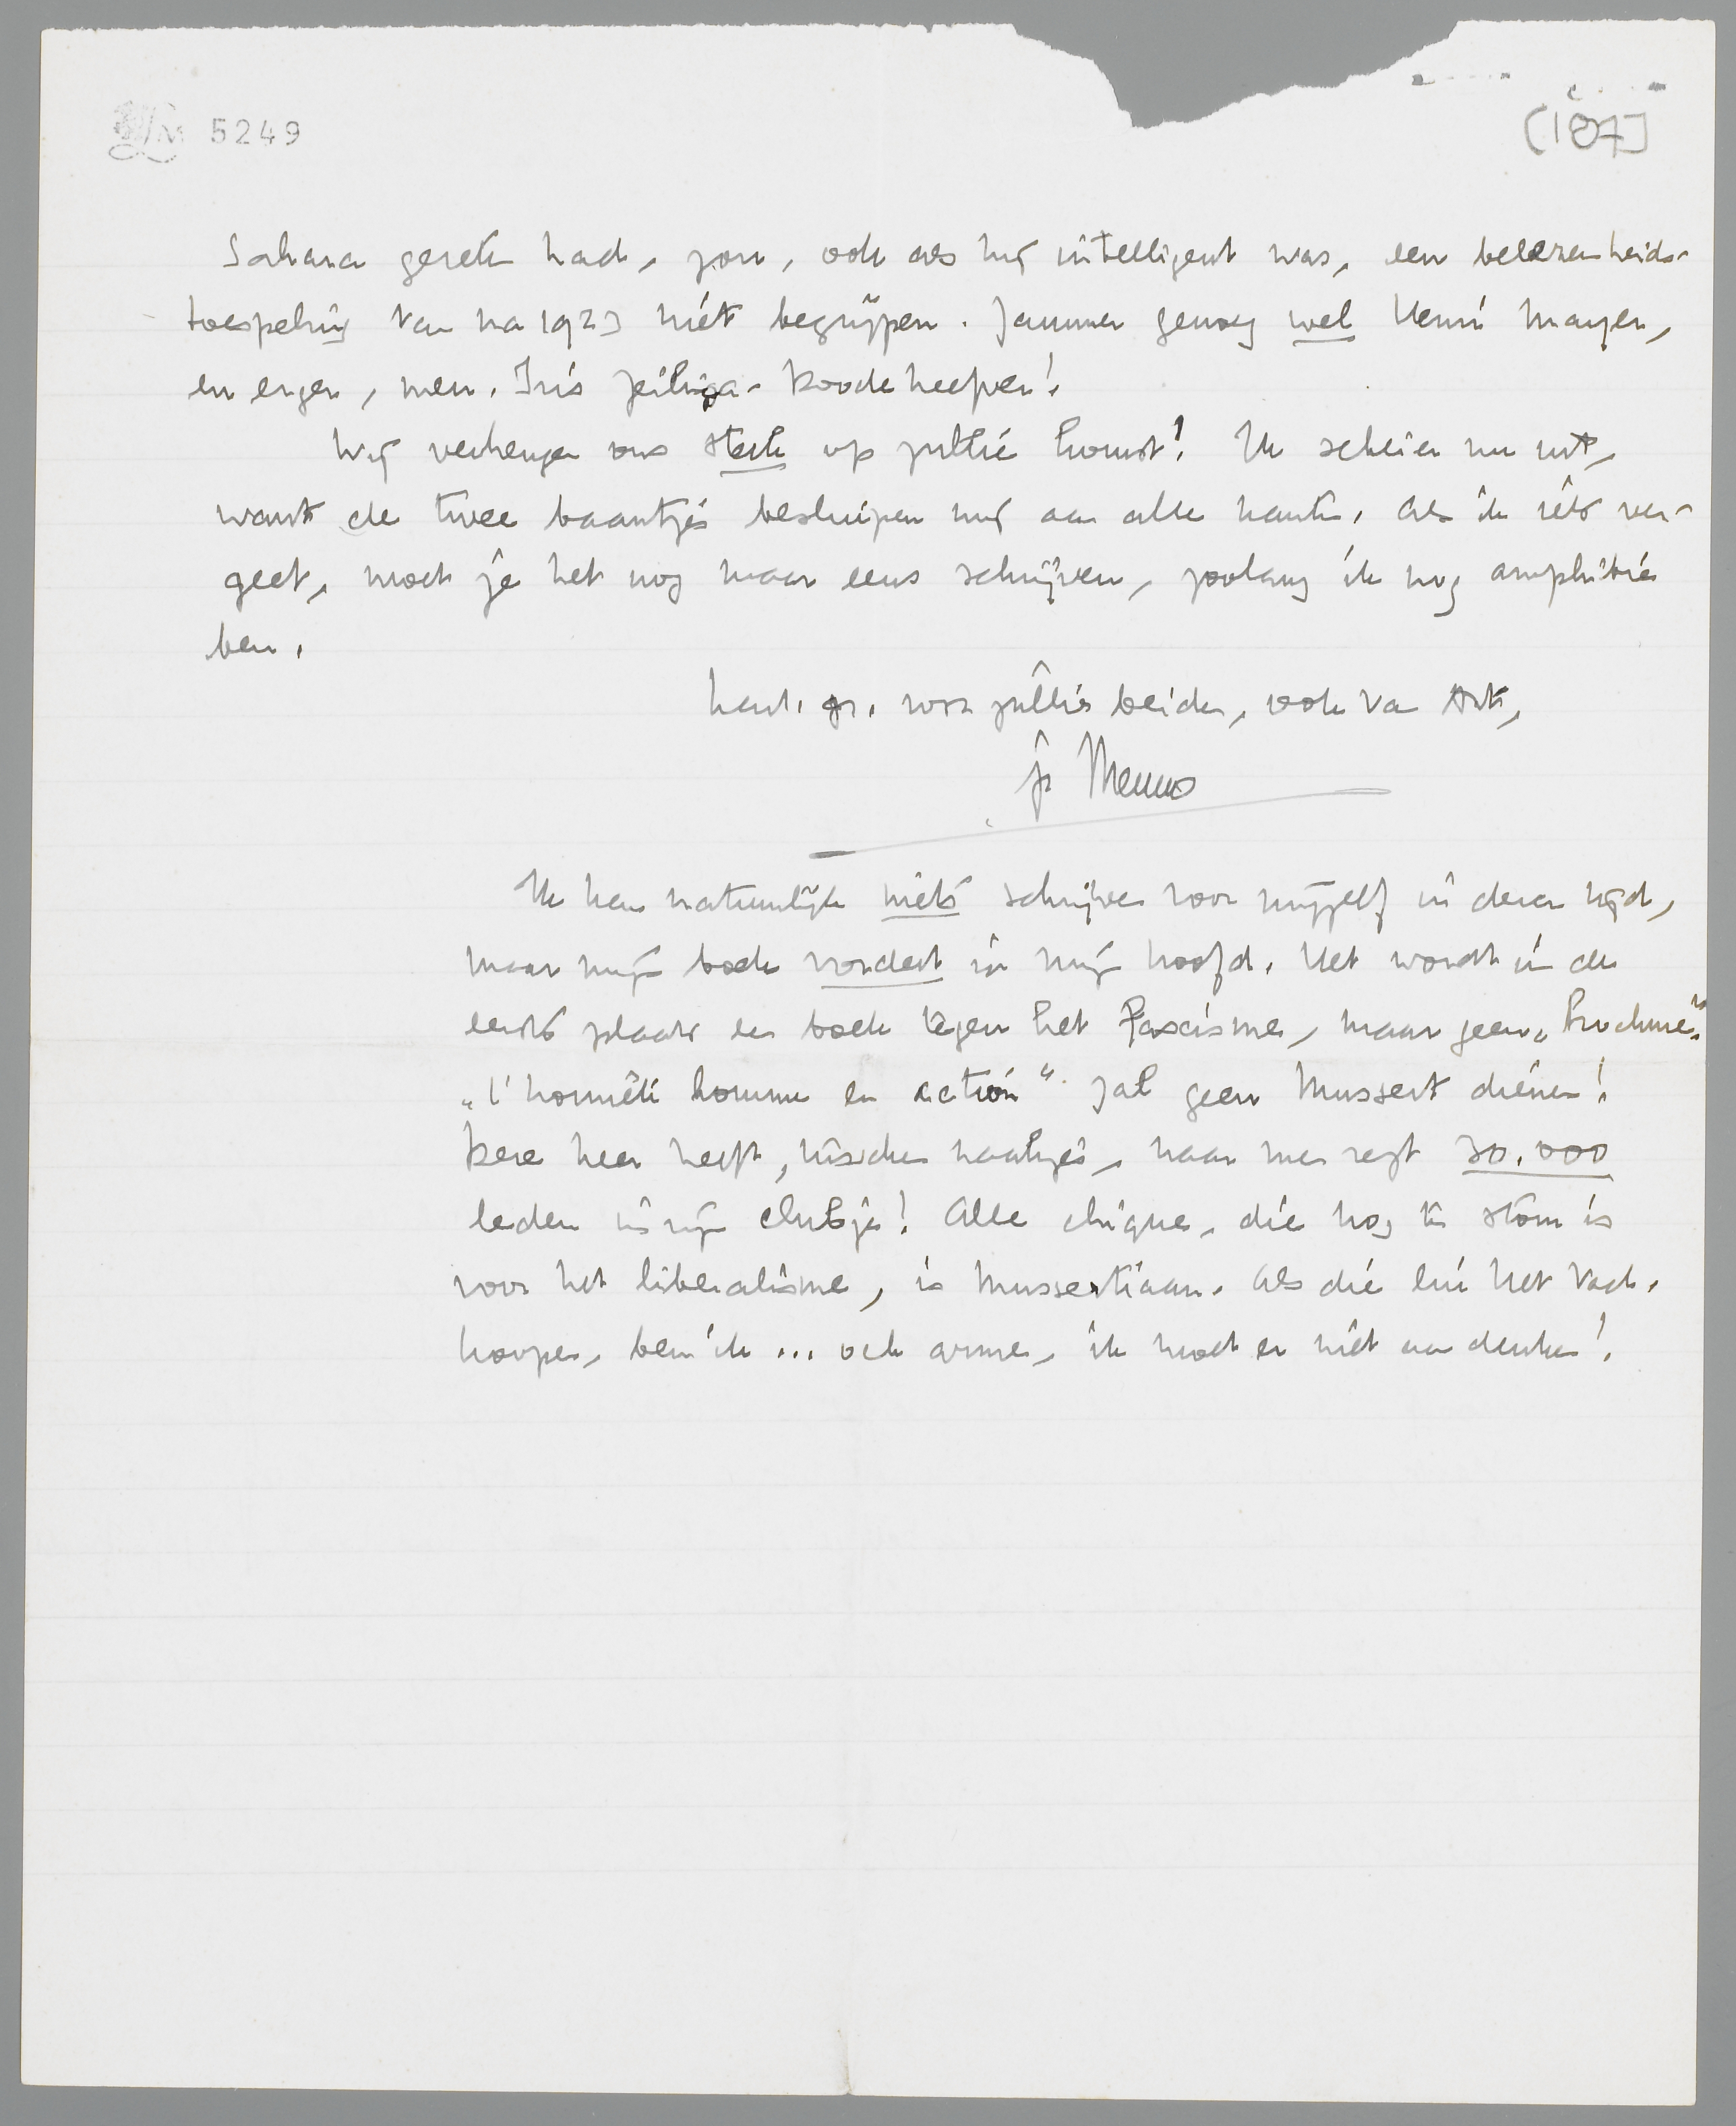 LM 5249
[187]
Sahara gezeten had, zou, ook als hij intelligent was, een belezenheids-
toespeling van na 1923 niet begrijpen. Jammer genoeg wel Henri Mayer,
en erger, mevr. Iris
Wij verheugen ons sterk op jullie komst! Ik schei er nu uit,
want de twee baantjes besluipen mij aan alle kanten. Als ik iets ver-
geet, moet je het nog maar eens schrijven, zoolang ik nog amphibie
ben.
hart. gr. voor jullie beiden, ook van Ant,
je Menno
Ik kan natuurlijk niets schrijven voor mijzelf in dezen tijd,
maar mijn boek vordert in mijn hoofd. Het wordt in de
eerste plaats een boek tegen het fascisme, maar geen „brochure".
„l'honnête homme en action". Zal geen Mussert dienen!
Deze heer heeft, naar men zegt 30.000
leden in zijn clubje! Alle clique, die nog te stom is
voor het liberalisme, is Mussertiaan. Als die lui Het Vad.
koopen, ben ik ... och arme, ik moet er niet aan denken!